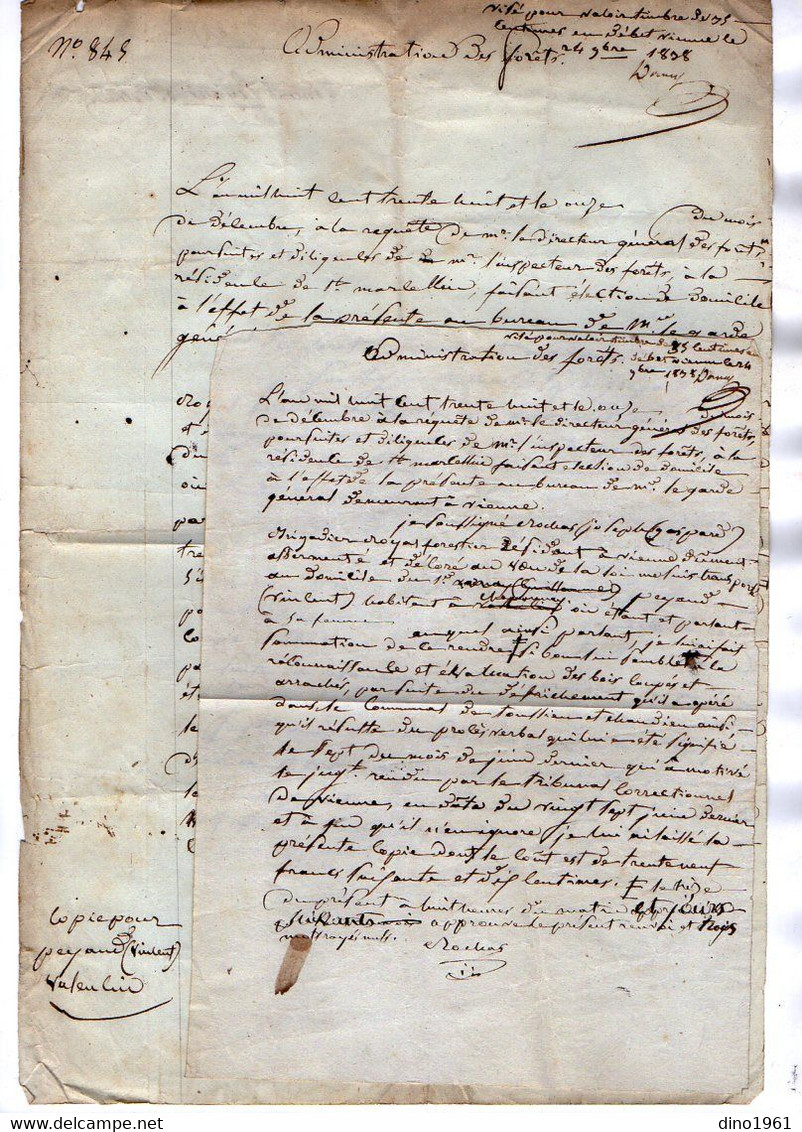 N° 845
Visé pour valoir timbre de 35
centimes en débet vienne le
24 9bre 1838
Administration des forêts.
L'an mil huit cent trente huit et le onze du mois
de décembre, à la requête de mr. le directeur général des forêts,
poursuites et diligences de mr. l'inspecteur des forêts, à la
résidence de st. marcellin, faisant élection de domicile
à l'effet de la présente au bureau de mr. le garde
géné
Visé pour valoir timbre de 35 centimes en
débet vienne le 24
9bre 1838
Administration des forêts.
L'an mil huit cent trente huit et le onze du mois
de décembre à la requête de mr. le directeur général des forêts,
poursuites et diligences de mr. l'inspecteur des forêts, à la
résidence de st. marcellin faisant élection de domicile
à l'effet de la présente au bureau de mr. le garde
général demeurant à vienne.
je soussigné Rochas (joseph gaspard)
Brigadier royal forestier résidant à vienne dûment
assermenté et décoré au vœu de la loi me suis transporté
au domicile du sr. peyaud
(vincent) habitant à où étant et parlant
à sa femme
auquel ainsi parlant, je lui ai fait
sommation de se rendre ‡ si bon lui semble à la
réconnaissance et évaluation des bois coupés et
arrachés, par suite du défrichement qu'il a opéré
dans le communal de toussieu et chandieu ainsi
qu'il résulte du procès verbal qui lui a été signifié
le sept du mois de juin dernier qui a motivé
le jugt. rendu par le tribunal correctionnel
de vienne, en date du vingt sept juin dernier
et à fin qu'il n'en ignore je lui ai laissé la
présente copie dont le coût est de trente neuf
francs soixante et dix centimes. ‡ le seize
du présent à huit heures du matin et jours
suivants approuve le présent renvoi et trois
mots rayés nuls.
Rochas
Copie pour
peyaud (vincent)
Valencin
dino1961